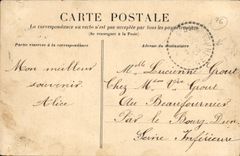 CARTE POSTALE
La correspondance au recto n'est pas acceptée par tous les pays étrangers
(Se renseigner à la Poste)
Partie réservée à la correspondance
Adresse du destinataire
Mon meilleur
souvenir
Alice
Melle Lucienne Grout
Chez Mme Vve Grout
Au Beaufournier
Par le Bourg Dun
Seine Inférieure